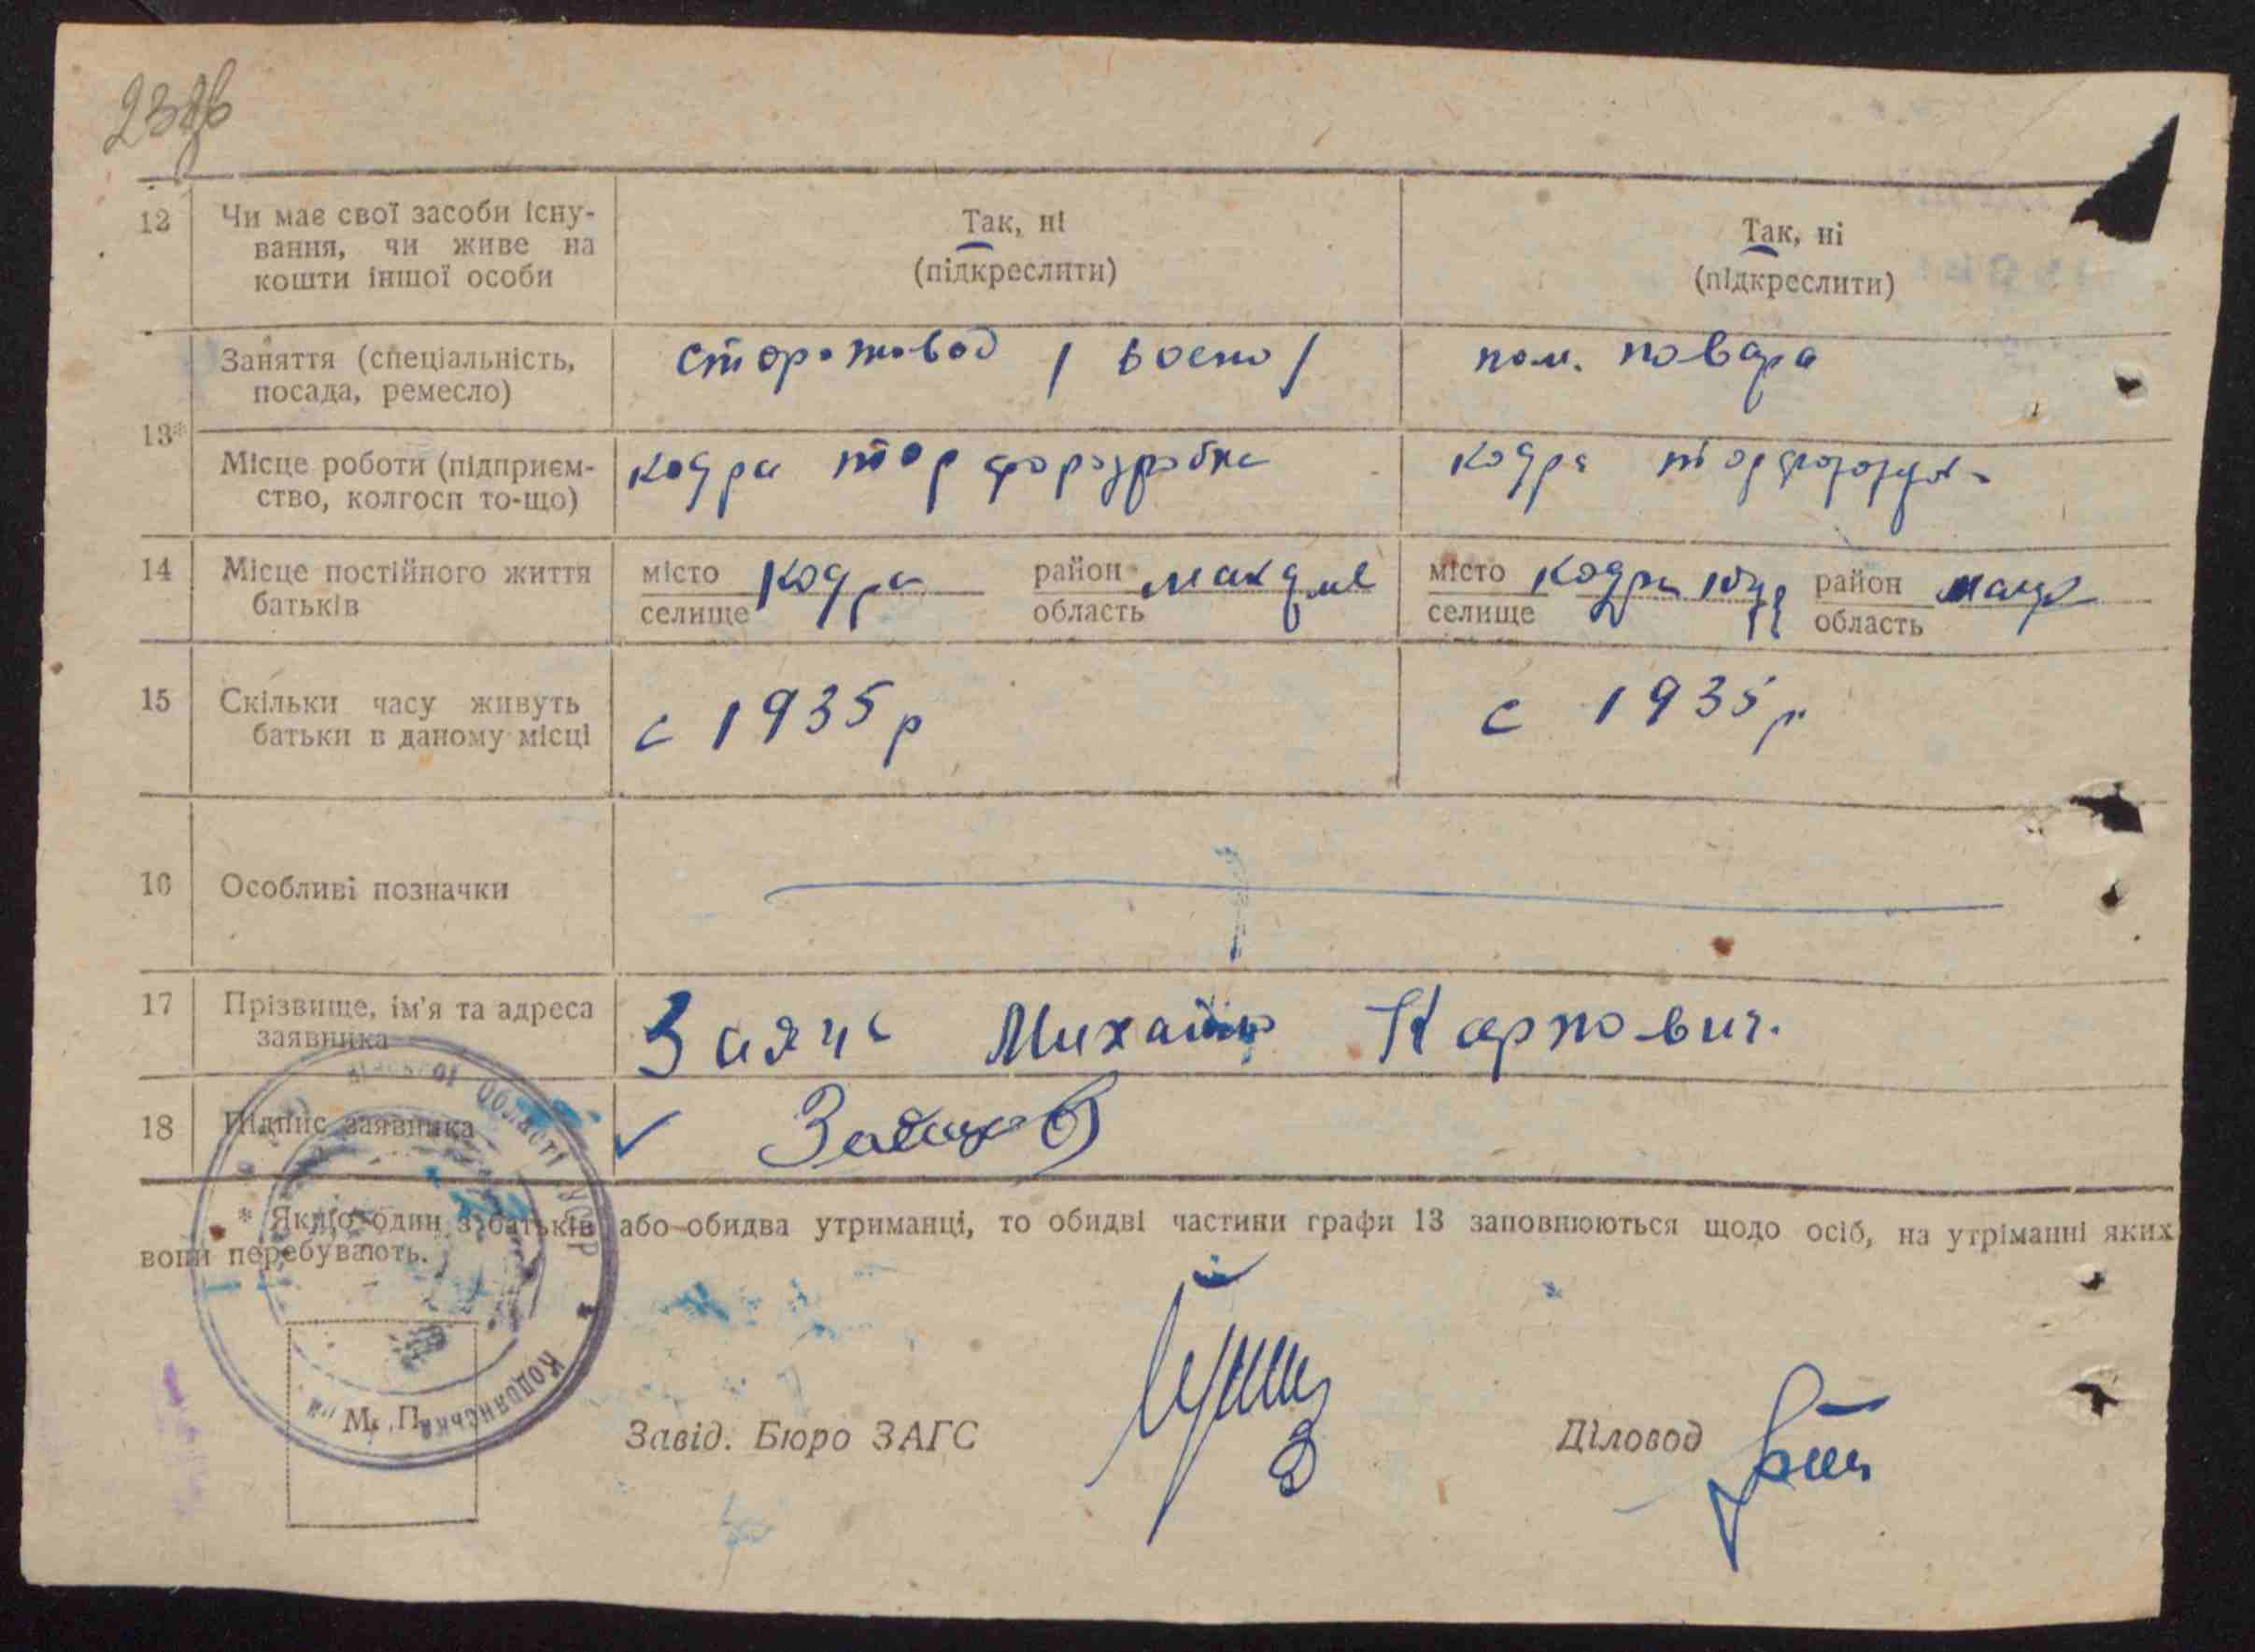 12 Чи має свої засоби існу- Так, ні Так, ні
вання, чи живе на (підкреслити) (підкреслити)
кошти іншої особи
Заняття (спеціальність, пом. повара
посада, ремесло)
13*
Місце роботи (підприєм- кодра торфорозробка кодра
ство, колгосп то-що)
14 Місце постійного життя місто Кодра район місто Кодра район
батьків селище область селище область
15 Скільки часу живуть с 1935 р с 1935 р
батьки в даному місці
16 Особливі позначки
17 Прізвище, ім'я та адреса Заяць Михайло Карпович.
заявника
18 Підпис заявника
* Якщо один з батьків або обидва утриманці, то обидві частини графи 13 заповнюються щодо осіб, на утріманні яких
вони перебувають.
області УСРР
Кодрянська
М. П. Завід. Бюро ЗАГС Діловод